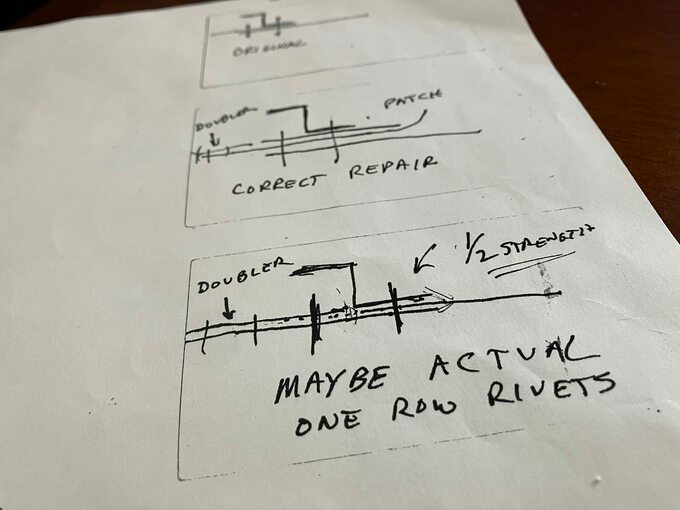 ORIGINAL
DOUBLER
PATCH
CORRECT REPAIR
DOUBLER
1/2 STRENGTH
MAYBE ACTUAL
ONE ROW RIVETS